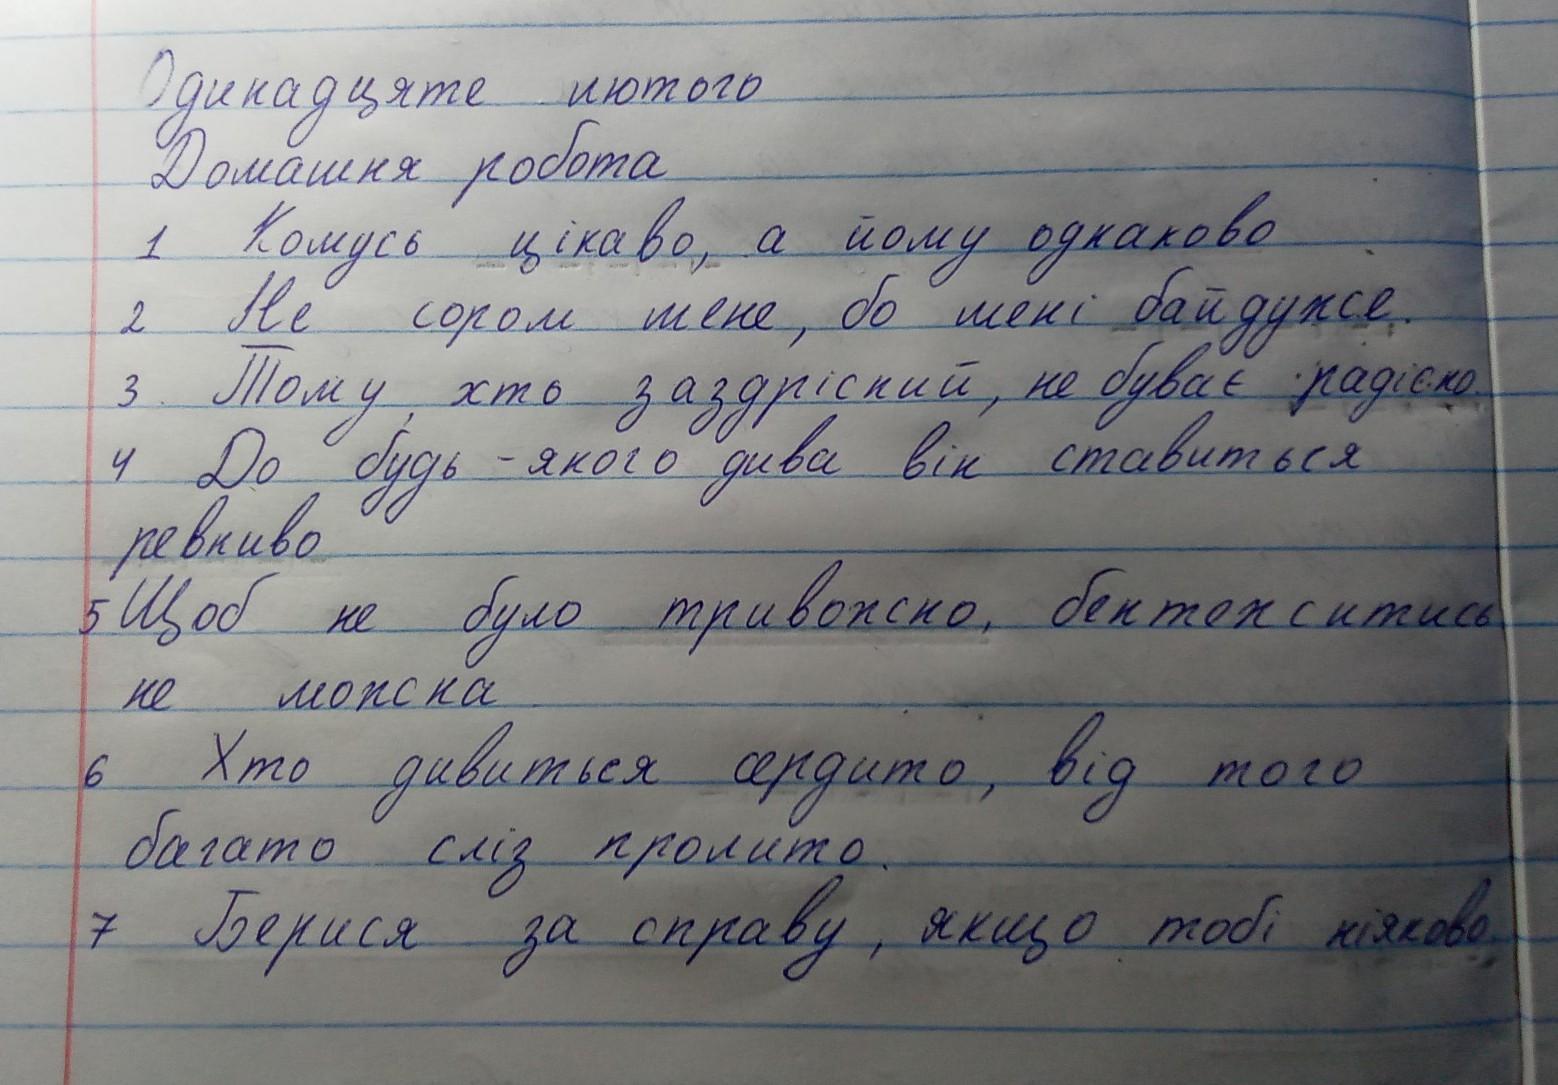 Одинадцяте лютого
Домашня робота
1 Комусь цікаво, а йому однаково
2 Не сором мене, бо мені байдуже.
3. Тому, хто заздрісний, не буває радісно.
4 До будь-якого дива він ставиться
ревниво
5 Щоб не було тривожно, бентежитись
не можна
6 Хто дивиться сердито, від того
багато сліз пролито.
7 Берися за справу, якщо тобі ніяково.